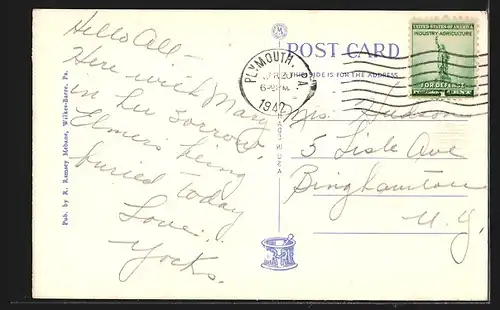 Hello All –
Here with Mary
in her sorrow.
Elmers being
buried today
Love.
Yorks.
Pub. by R. Ramsey Mebane, Wilkes-Barre, Pa.
POST CARD
THIS SIDE IS FOR THE ADDRESS
PLYMOUTH, PA.
1942
UNITED STATES OF AMERICA
INDUSTRY-AGRICULTURE
FOR DEFENSE
Mrs. Hudson
5 Lisle Ave
Binghamton
N.Y.